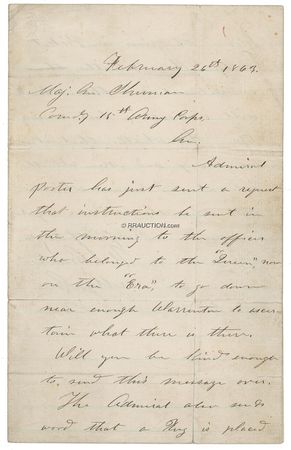 February 26th 1863.
Maj. Gn. Sherman
Comdg 15th Army Corps.
Gn.
Admiral
Porter has just sent a request
that instructions be sent in
the morning to the officer
who belonged to the "Queen," now
on the "Era," to go down
near enough Warrenton to ascer-
tain what there is there.
Will you be kind enough
to send this message over.
The Admiral also sends
word that a Flag is placed
WWW.RRAUCTION.COM